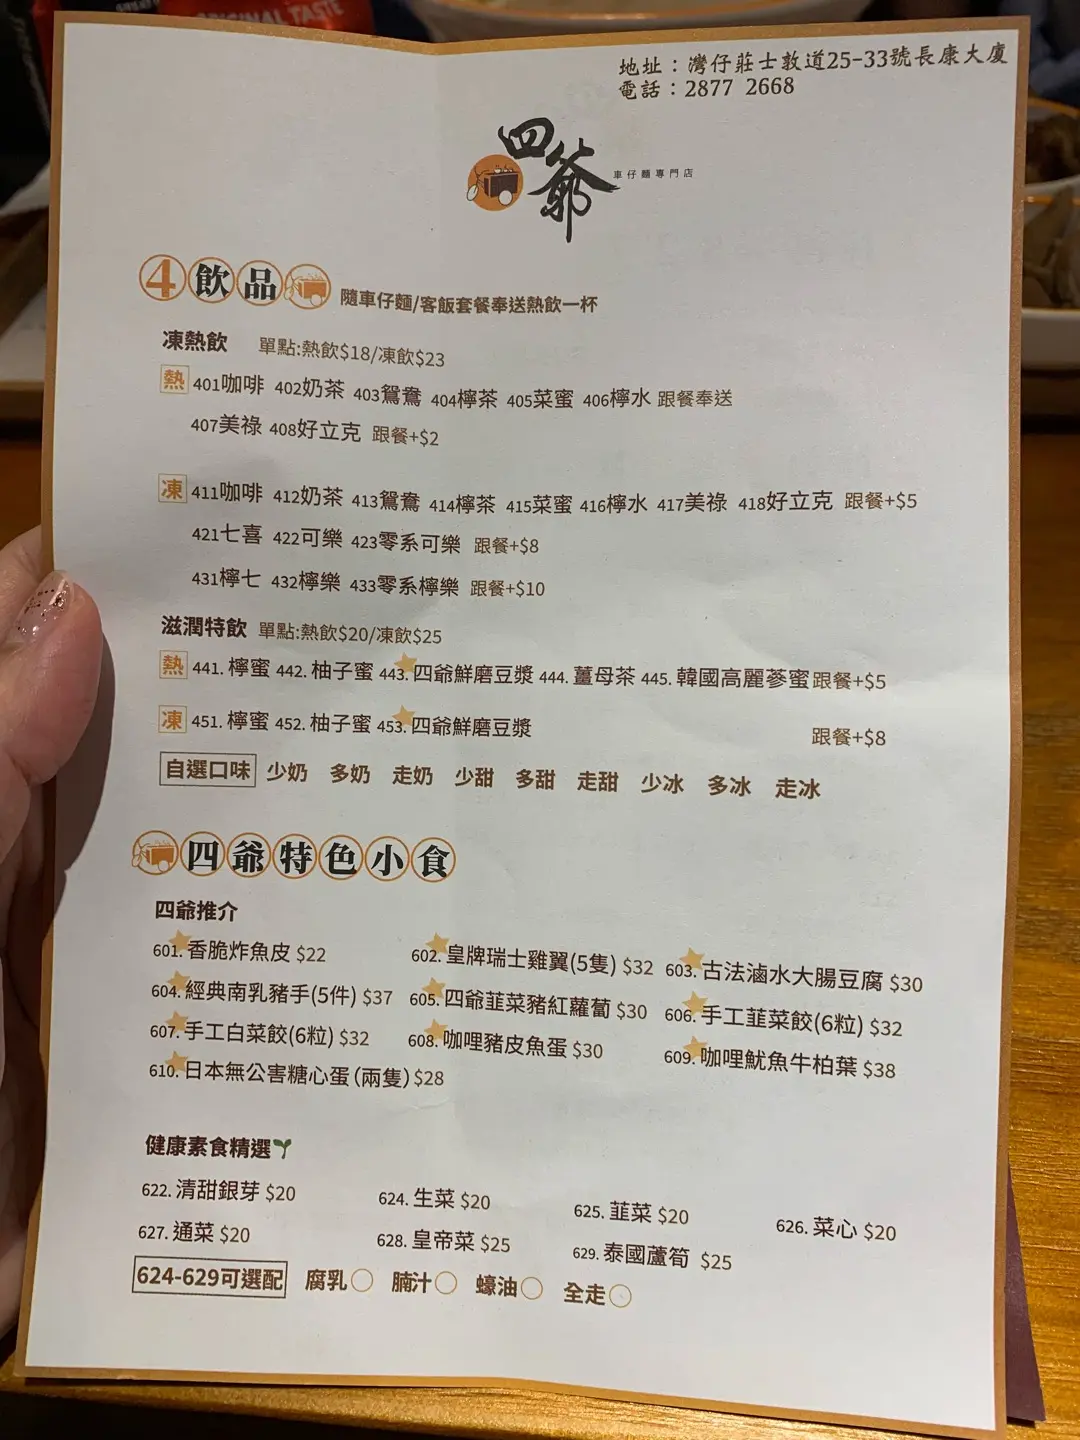 ORIGINAL TASTE
地址：灣仔莊士敦道25-33號長康大廈
電話：2877 2668
四爺
車仔麵專門店
4飲品 隨車仔麵/客飯套餐奉送熱飲一杯
凍熱飲 單點:熱飲$18/凍飲$23
熱 401咖啡 402奶茶 403鴛鴦 404檸茶 405菜蜜 406檸水 跟餐奉送
407美祿 408好立克 跟餐+$2
凍 411咖啡 412奶茶 413鴛鴦 414檸茶 415菜蜜 416檸水 417美祿 418好立克 跟餐+$5
421七喜 422可樂 423零系可樂 跟餐+$8
431檸七 432檸樂 433零系檸樂 跟餐+$10
滋潤特飲 單點:熱飲$20/凍飲$25
熱 441. 檸蜜 442. 柚子蜜 443. 四爺鮮磨豆漿 444. 薑母茶 445. 韓國高麗蔘蜜 跟餐+$5
凍 451. 檸蜜 452. 柚子蜜 453. 四爺鮮磨豆漿 跟餐+$8
自選口味 少奶 多奶 走奶 少甜 多甜 走甜 少冰 多冰 走冰
四爺特色小食
四爺推介
601. 香脆炸魚皮 $22 602. 皇牌瑞士雞翼(5隻) $32 603. 古法滷水大腸豆腐 $30
604. 經典南乳豬手(5件) $37 605. 四爺韮菜豬紅蘿蔔 $30 606. 手工韮菜餃(6粒) $32
607. 手工白菜餃(6粒) $32 608. 咖哩豬皮魚蛋 $30 609. 咖哩魷魚牛柏葉 $38
610. 日本無公害糖心蛋(兩隻) $28
健康素食精選
622. 清甜銀芽 $20 624. 生菜 $20 625. 韮菜 $20 626. 菜心 $20
627. 通菜 $20 628. 皇帝菜 $25 629. 泰國蘆筍 $25
624-629可選配 腐乳 腩汁 蠔油 全走